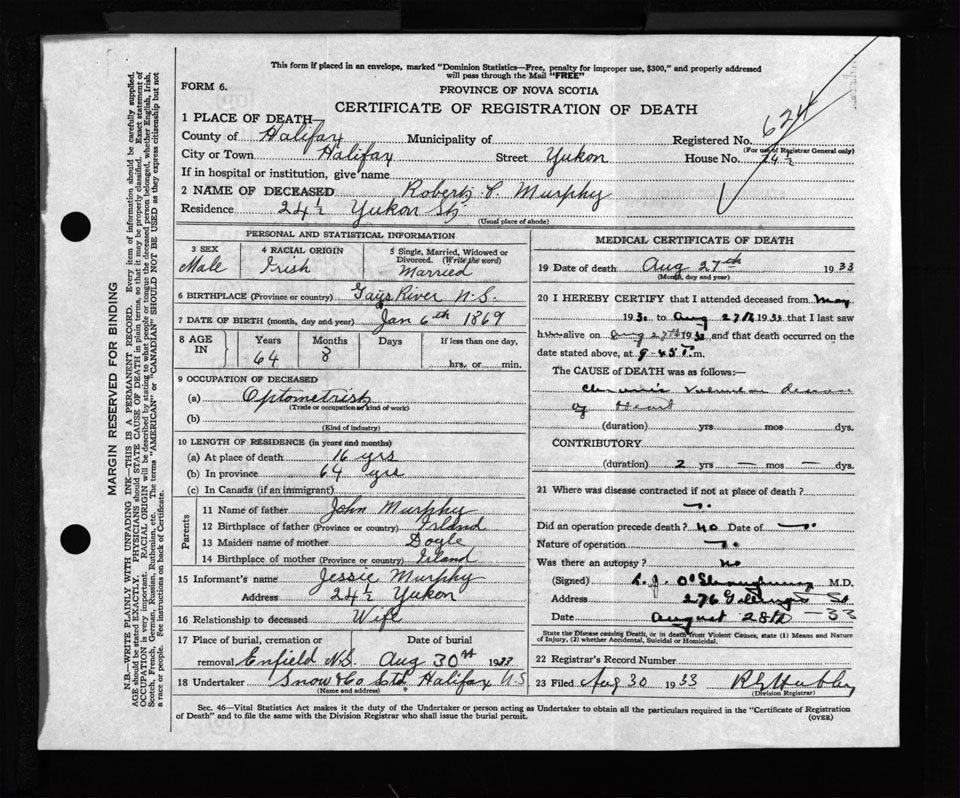 This form if placed in an envelope, marked "Dominion Statistics—Free, penalty for improper use, $300," and properly addressed
will pass through the Mail "FREE"
FORM 6.
PROVINCE OF NOVA SCOTIA
CERTIFICATE OF REGISTRATION OF DEATH
624
1 PLACE OF DEATH
County of Halifax Municipality of Registered No.
(For use of Registrar General only)
City or Town Halifax Street Yukon House No. 24½
If in hospital or institution, give name
2 NAME OF DECEASED Robert P. Murphy
Residence 24½ Yukon St
(Usual place of abode)
PERSONAL AND STATISTICAL INFORMATION
3 SEX 4 RACIAL ORIGIN 5 Single, Married, Widowed or
Divorced. (Write the word)
Male Irish Married
6 BIRTHPLACE (Province or country) Gays River N.S.
7 DATE OF BIRTH (month, day and year) Jan 6th 1869
8 AGE IN Years Months Days If less than one day,
64 8 hrs. or min.
9 OCCUPATION OF DECEASED
(a) Optometrist
(Trade or occupation or kind of work)
(b)
(Kind of industry)
10 LENGTH OF RESIDENCE (in years and months)
(a) At place of death 16 yrs
(b) In province 64 yrs
(c) In Canada (if an immigrant)
Parents
11 Name of father John Murphy
12 Birthplace of father (Province or country) Irland
13 Maiden name of mother Doyle
14 Birthplace of mother (Province or country) Island
15 Informant's name Jessie Murphy
Address 24½ Yukon
16 Relationship to deceased Wife
17 Place of burial, cremation or Date of burial
removal Enfield N.S. Aug 30th 1933
18 Undertaker Snow & Co Ltd Halifax N.S
(Name and address)
MEDICAL CERTIFICATE OF DEATH
19 Date of death Aug 27th 1933
(Month, day and year)
20 I HEREBY CERTIFY that I attended deceased from May
193 to Aug 27th 1933 that I last saw
him alive on Aug 27th 1933 and that death occurred on the
date stated above, at 9-45 P.m.
The CAUSE of DEATH was as follows:—
Valvular disease
of Heart
(duration) yrs mos dys.
CONTRIBUTORY
(duration) 2 yrs — mos — dys.
21 Where was disease contracted if not at place of death?
Did an operation precede death? no Date of
Nature of operation
Was there an autopsy? no
(Signed) M.D.
Address 276 St
Date August 28th -33
State the Disease causing Death, or in death from Violent Causes, state (1) Means and Nature
of Injury, (2) whether Accidental, Suicidal or Homicidal.
22 Registrar's Record Number
23 Filed Aug 30 1933
(Division Registrar)
Sec. 46—Vital Statistics Act makes it the duty of the Undertaker or person acting as Undertaker to obtain all the particulars required in the "Certificate of Registration
of Death" and to file the same with the Division Registrar who shall issue the burial permit. (OVER)
MARGIN RESERVED FOR BINDING
N.B.—WRITE PLAINLY WITH UNFADING INK—THIS IS A PERMANENT RECORD. Every item of information should be carefully supplied.
AGE should be stated EXACTLY. PHYSICIANS should STATE CAUSE OF DEATH in plain terms, so that it may be properly classified. Exact statement of
OCCUPATION is very important. RACIAL ORIGIN will be described by stating to what people or tongue the deceased person belonged, whether English, Irish,
Scotch, French, German, Russian, Ruthenian, etc. The terms "AMERICAN" or "CANADIAN" SHOULD NOT BE USED as they express citizenship but not
a race or people. See instructions on back of Certificate.